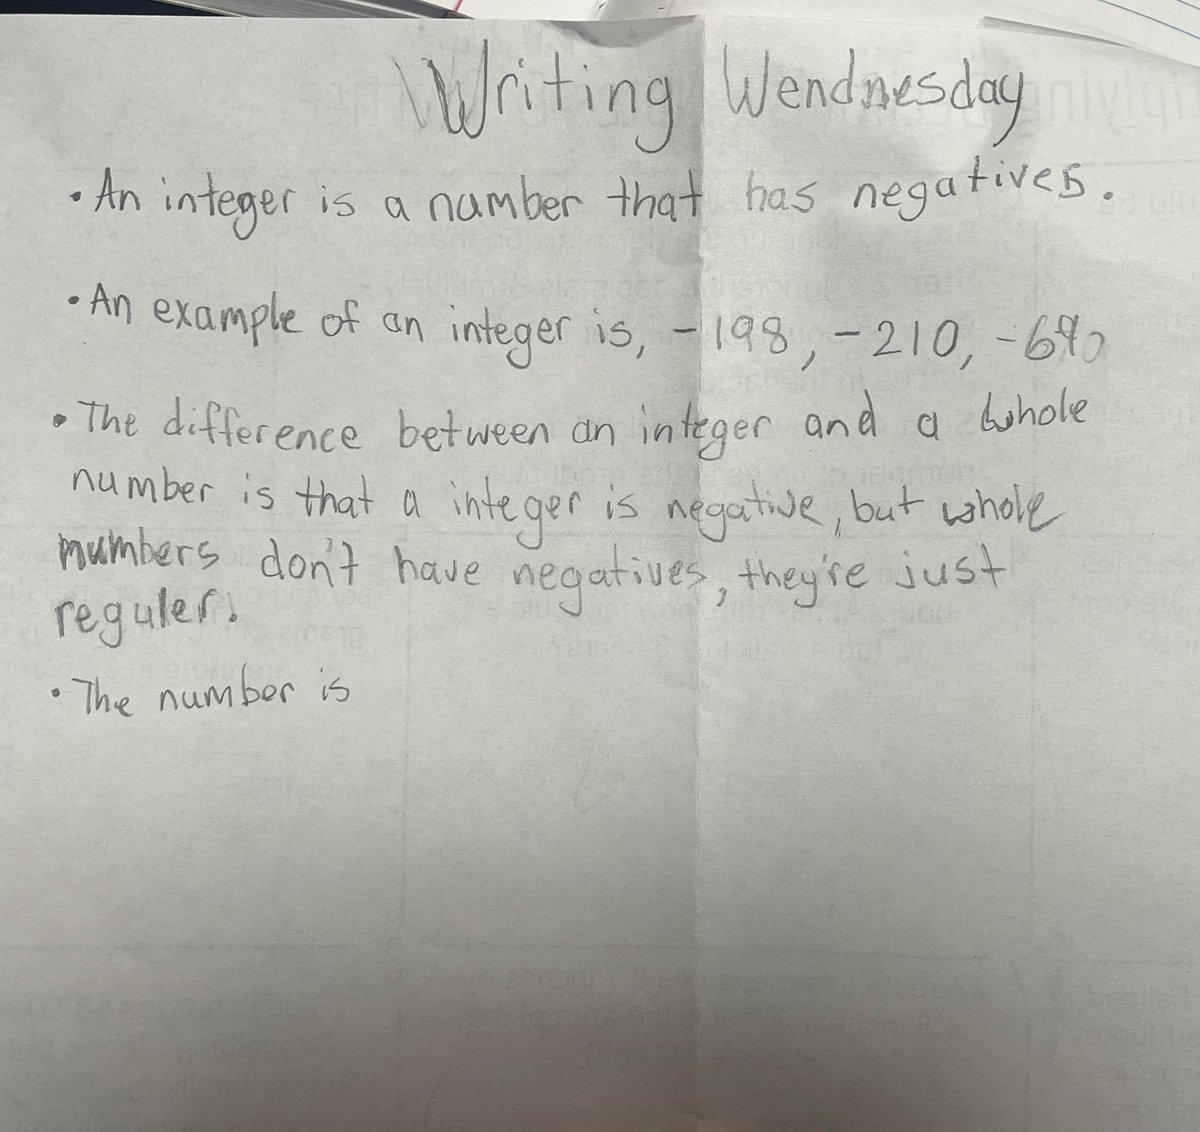 Writing Wendnesday
• An integer is a number that has negatives.
• An example of an integer is, -198, -210, -690
• The difference between an integer and a whole
number is that a integer is negative, but whole
numbers don't have negatives, they're just
reguler.
• The number is